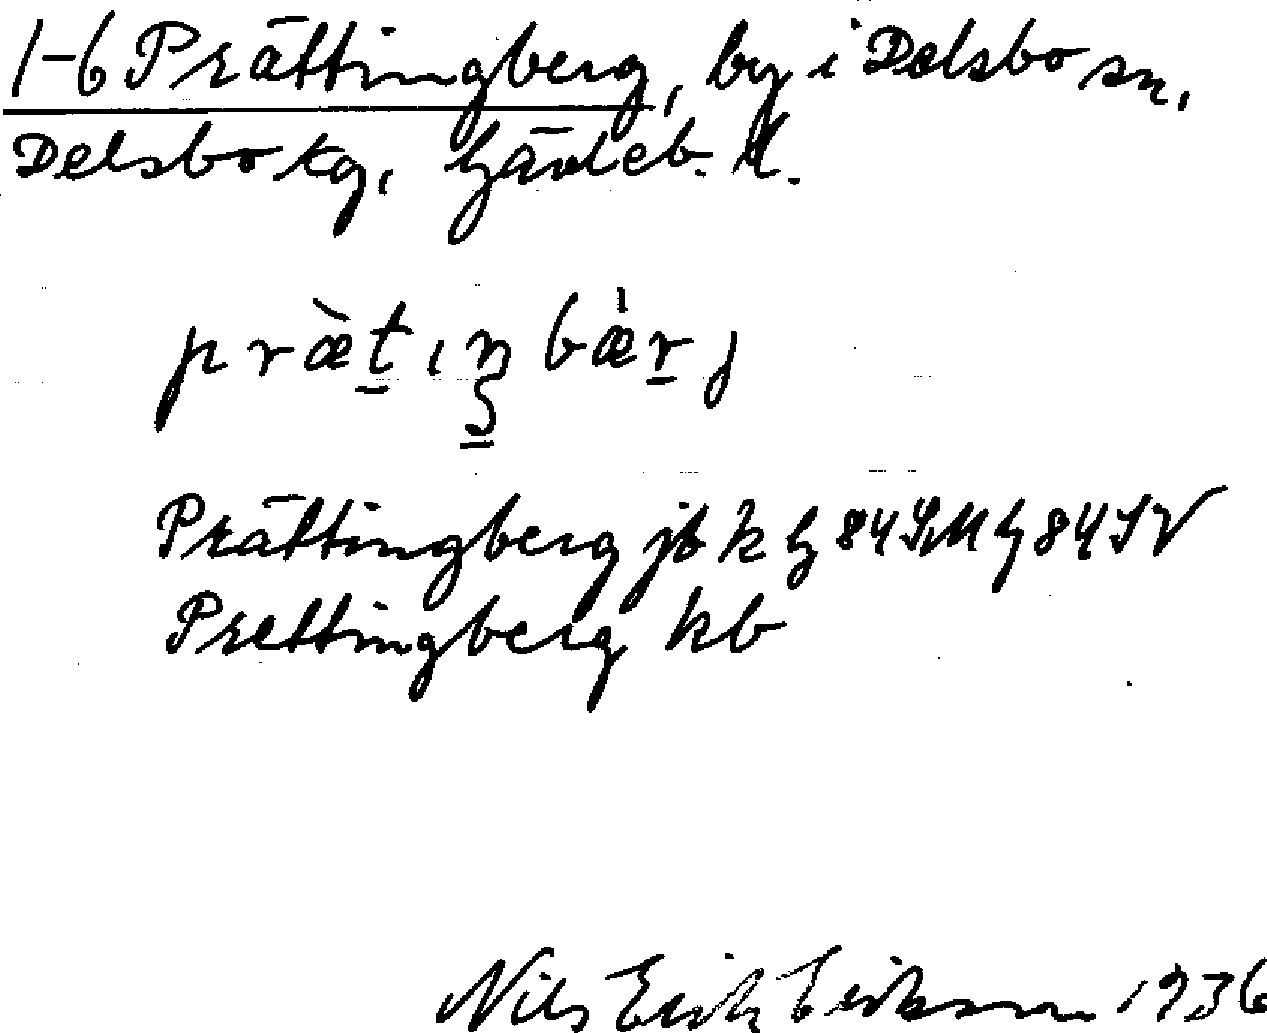 1-6 Prättingberg, by i Delsbo sn,
Delsbo tg, Gävleb. l.
præ̀t̲ıŋbæ̍r̲ȷ
Prättingberg jb k G 84 SM G 84 SV
Prettingberg kb
Nils Erik Eriksson 1936